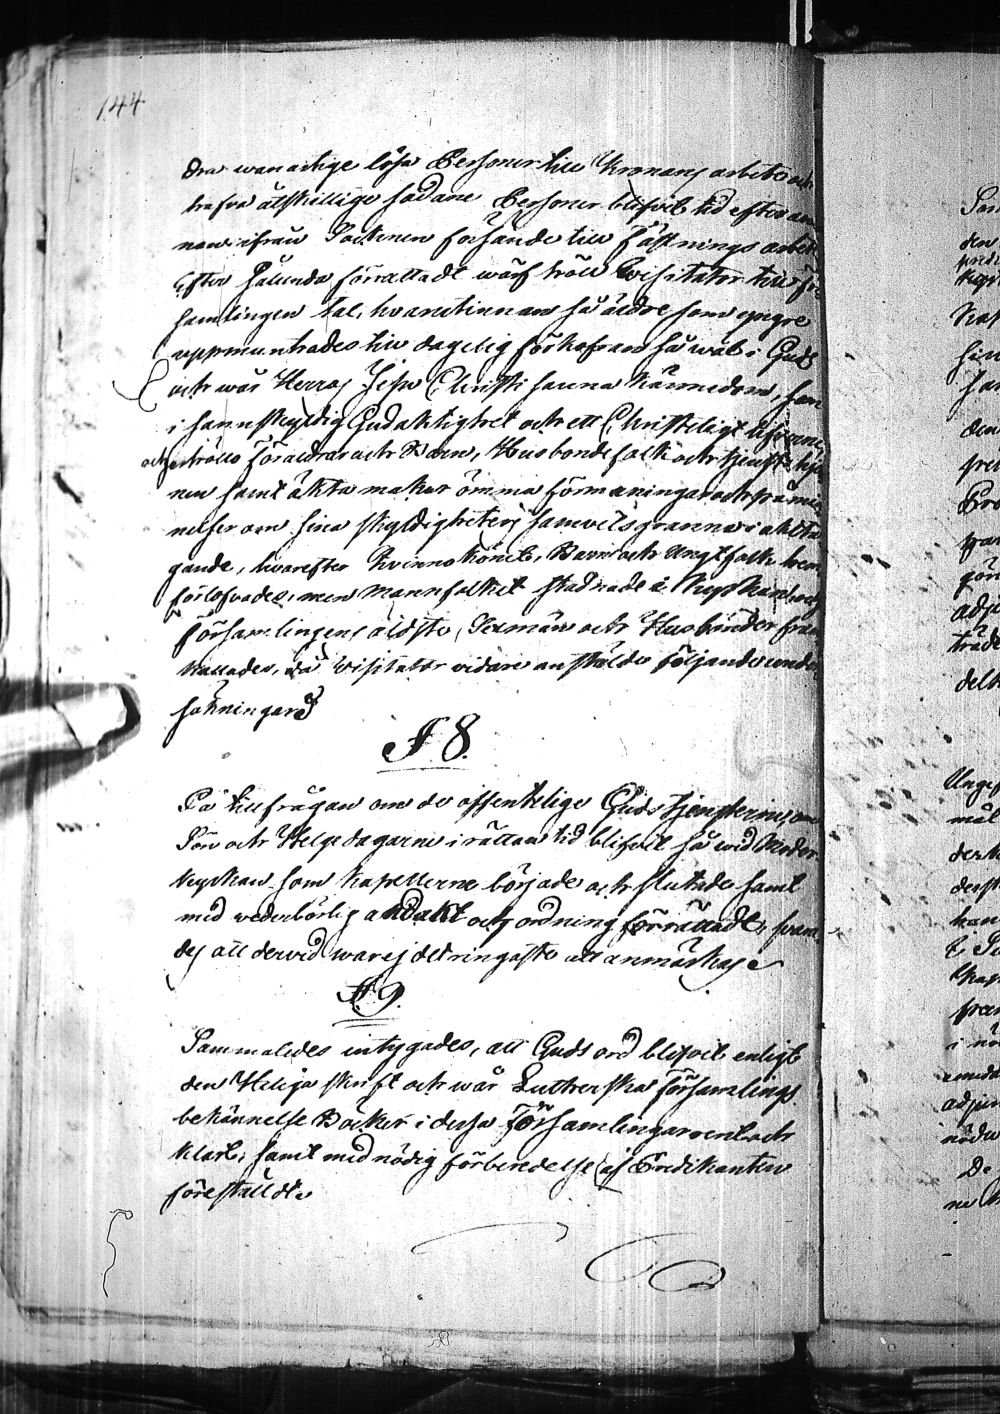 144
dra wanartige lösa Personer till Kronans arbete och
trafva åtskillige sådane Personer blifvit tid efter an
nan ifrån Socknen försände till Fästnings arbete
Efter sålunda förrättadt wärf höll Visitator till För
samlingen tal, hvarutinnan så äldre som yngre
uppmuntrades till dagelig förkofran så wäl i Guds
och wår Herras Jesu Christi sanna kännedom, som
i sannskyldig Gudaktighet och ett Christeligt lefverne,
och erhöllo Föräldrar och Barn, Husbondefolk och tjenste hjo
nen samt äkta makar ömma förmaningar och påmin
nelser om sina skyldigheters samvetsgranna iakta
gande, hvarefter Kvinnokönet, Barn och Ungt folk hem
förlofvades, men Mannfolket stadnade i Kyrkan och
Församlingens äldste, Sexmän och Husbönder fram
kallades, då Visitator vidare anstälde följande under
sökningar
§ 8.
På tillfrågan om de offentelige Gudstjensterne om
Sön och Helgedagarne i rättan tid blifvit så wid Moder
kyrkan som Kapellerne började och slutade samt
med wederbörlig andakt och ordning förrättade, svara
des att dervid war ej det ringaste att anmärkas
§ 9.
Sammaledes intygades, att Guds ord blifvit enligt
den Heliga skrift och wår Lutherska Församlings
bekännelse Böcker i dessa Församlingar rent och
klart, samt med nödig förberedelse af Predikanten
föreställdt.